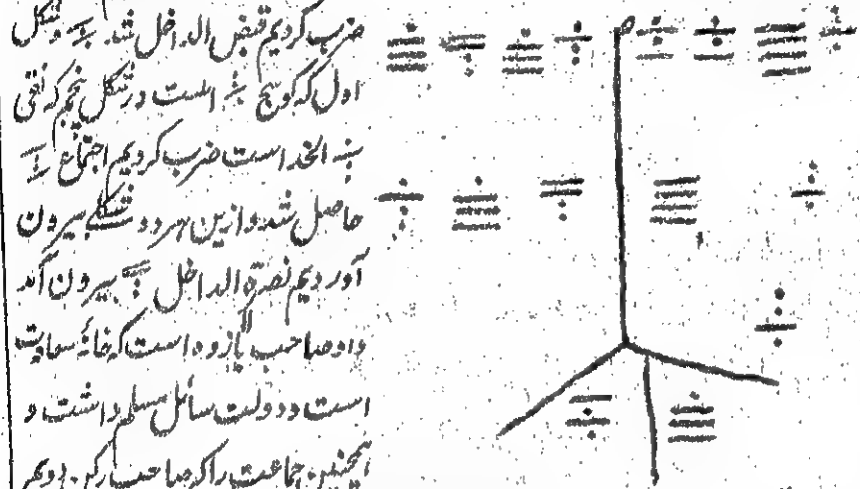 ضرب کردیم قبض الداخل شد و شکل
اول که کوسج است در شکل پنجم که نقی
الخد است ضرب کردیم اجتماع
حاصل شد و ازین هر دو شکلی بیرون
آوردیم نصرة الداخل بیرون آمد
و او صاحب یازده است که خانهٔ سعادت
است و دولت سائل مسلم داشت و
همچنین جماعت را که صاحب رکن دویم